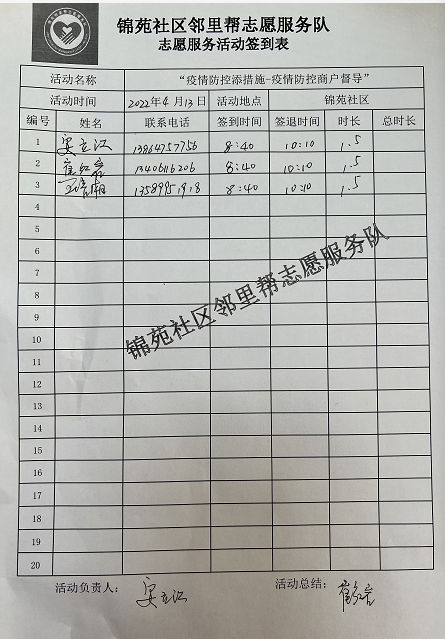 锦苑社区邻里帮志愿服务队
志愿服务活动签到表
活动名称 “疫情防控添措施-疫情防控商户督导”
活动时间 2022年4月13日 活动地点 锦苑社区
编号 姓名 联系电话 签到时间 签退时间 时长 总时长
1 13864757756 8:40 10:10 1.5
2 13406116206 8:40 10:10 1.5
3 13589951918 8:40 10:10 1.5
4
5
6
7
8
9
10
11
12
13
14
15
16
17
18
19
20
锦苑社区邻里帮志愿服务队
活动负责人： 活动总结：